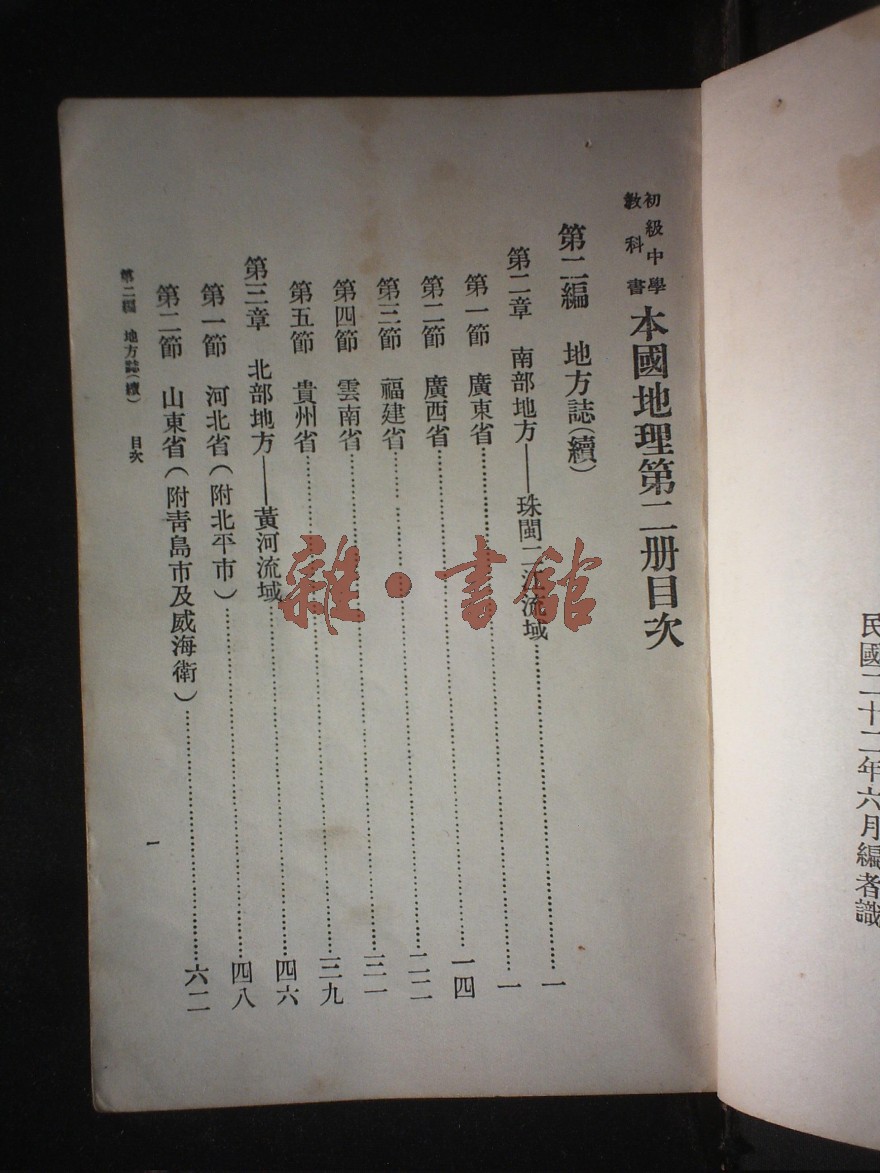 民國二十二年六月編者識
初級中學
教科書
本國地理第二册目次
第二編 地方誌(續)
第二章 南部地方——珠閩二江流域……一
第一節 廣東省……一
第二節 廣西省……一四
第三節 福建省……二二
第四節 雲南省……三一
第五節 貴州省……三九
第三章 北部地方——黃河流域……四六
第一節 河北省(附北平市)……四八
第二節 山東省(附靑島市及威海衛)……六二
第二編 地方誌(續) 目次
一
雜·書館